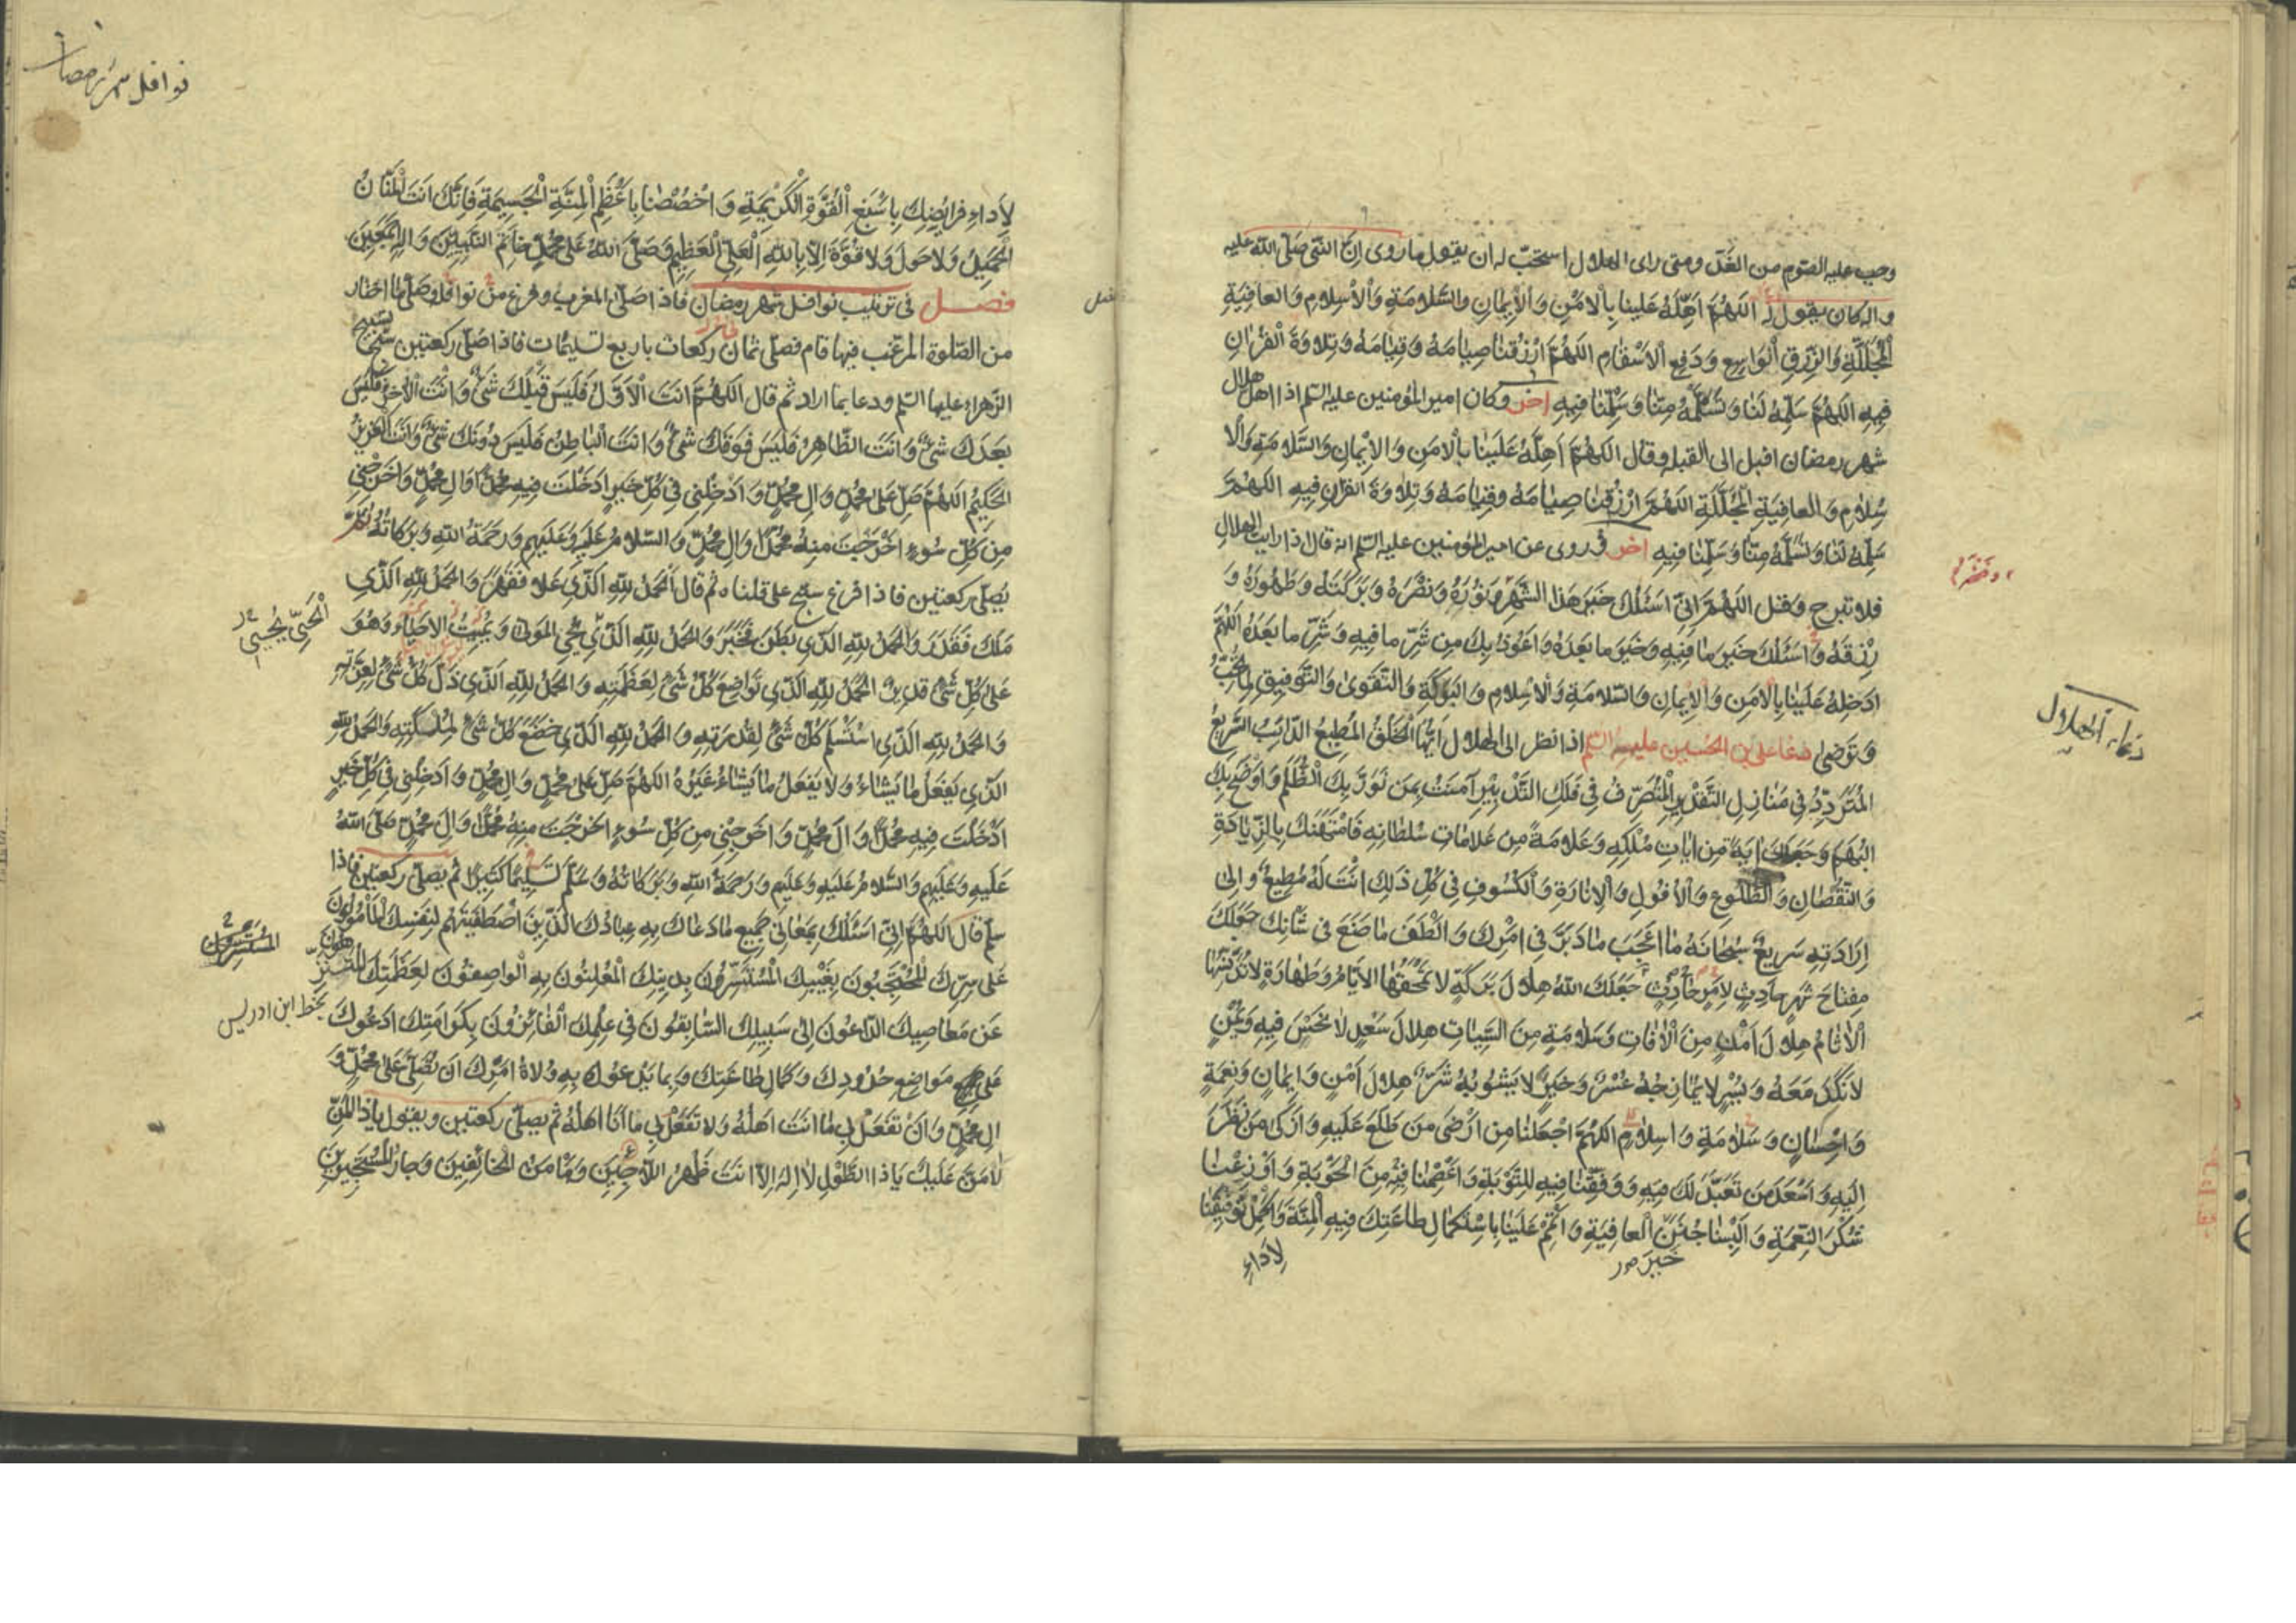 وجب عليه الصّوم من الغد ومتى راى الهلال استحبّ له ان يقول ما روى انّ النّبى صَلّى الله عليه
واله كان يقول اَللّهُمَّ اَهِلَّهُ عَلَينا بِالْاَمْنِ وَالْاِيمانِ والسَّلامَةِ وَالْاِسْلامِ وَالعافِيَةِ
الْمُجَلَّلَةِ وَالرِّزْقِ الْواسِعِ وَدَفْعِ الْاَسْقامِ اللهُمَّ ارْزُقنا صِيامَهُ وَقِيامَهُ وَتِلاوَةَ الْقُرْانِ
فِيهِ اللهُمَّ سَلِّمْهُ لَنا وَتَسَلَّمْهُ مِنّا وَسَلِّمْنا فِيهِ اخر وكان امير المؤمنين عليه السّلم اذا اهل هلال
شهر رمضان اقبل الى القبلة وقال اللهُمَّ اَهِلَّهُ عَلَيْنا بالْاَمنِ وَالاِيْمانِ وَالسَّلامَةِ وَالْا
سْلامِ وَالعافِيَةِ الْمُجَلَّلَةِ اللهُمَّ ارْزُقنا صِيامَهُ وقِيامَهُ وَتِلاوَةَ القرانِ فِيهِ اللهُمَّ
سَلِّمْهُ لَنا وَتَسَلَّمْهُ مِنّا وَسَلِّمْنا فِيهِ اخر وروى عن امير المؤمنين عليه السّلم انه قال اذا رايت الهلال
فلا تبرح وَقل اللهُمَّ اِنّى اَسْئَلُكَ خَيْرَ هَذا الشَّهْرِ وَنُورَهُ وَنَصْرَهُ وَبَرَكَتَهُ وَطَهُورَهُ وَ
رِزْقَهُ وَاَسْئَلُكَ خَيْرَ ما فِيهِ وَخَيْرَ ما بَعْدَهُ وَاَعُوذُ بِكَ مِن شَرِّ ما فِيهِ وَشَرِّ ما بَعْدَهُ اللهُمَّ
اَدْخِلْهُ عَلَيْنا بِالْاَمنِ وَالْاِيمانِ وَالسَّلامَةِ وَالْاِسْلامِ وَالبَرَكَةِ وَالتَّقوَى وَالتَّوفِيقِ لِما تُحِبُّ
وَتَرضى دعا على بن الحسين عليه السّلم اذا نظر الى الهلال اَيُّهَا الْخَلْقُ الْمُطِيعُ الدّائِبُ السَّرِيعُ
الْمُتَرَدِّدُ فِى مَنازِلِ التَّقدِيرِ الْمُتَصَرِّفُ فِى فَلَكِ التَّدْبِيْرِ آمَنْتُ بِمَن نَوَّرَ بِكَ الظُّلَمَ وَاَوْضَحَ بِكَ
الْبُهَمَ وَجَعَلَكَ ايَةً مِن اياتِ مُلْكِهِ وَعَلامَةً مِنْ عَلاماتِ سُلْطانِهِ فَامْتَهَنَكَ بِالزِّيادَةِ
وَالنُّقْصانِ وَالطُّلُوعِ وَالْاُفُولِ وَالْاِنارَةِ وَالْكُسُوفِ فِى كُلِّ ذَلِكَ اَنْتَ لَهُ مُطِيعٌ وَاِلى
اِرادَتِهِ سَرِيعٌ سُبْحانَهُ ما اَعْجَبَ ما دَبَّرَ فِى اَمْرِكَ وَاَلْطَفَ ما صَنَعَ فى شَأْنِكَ جَعَلَكَ
مِفتاحَ شَهْرٍ حادِثٍ لِاَمْرٍ حادِثٍ جَعَلَكَ اللهُ هِلالَ بَرَكَةٍ لا تَمْحَقُهَا الْاَيّامُ وَطَهارَةٍ لا تُدَنِّسُهَا
الْاثامُ هِلالَ اَمْنٍ مِنَ الْافاتِ وَسَلامَةٍ مِنَ السَّيّاتِ هِلالَ سَعْدٍ لا نَحْسَ فِيهِ وَيُمْنٍ
لا نَكَدَ مَعَهُ وَيُسْرٍ لا يُمازِجُهُ عُسْرٌ وَخَيْرٍ لا يَشُوبُهُ شَرٌّ هِلالَ اَمْنٍ وَاِيمانٍ وَنِعْمَةٍ
وَاِحْسانٍ وَسَلامَةٍ وَاِسلامٍ اللهُمَّ اجْعَلْنا مِن اَرْضى مَن طَلَعَ عَلَيهِ وَاَزْكى مَن نَظَرَ
اِلَيهِ وَاَسْعَدِ مَن تَعَبَّدَ لَكَ فِيهِ وَوَفِّقْنا فِيهِ لِلتَّوْبَةِ وَاعْصِمْنا فِيْهِ مِنَ الْحَوْبَةِ وَاَوْزِعْنا
شُكْرَ النِّعْمَةِ وَاَلْبِسْنا جُنَنَ الْعافِيَةِ وَاَتْمِمْ عَلَيْنا بِاسْتِكْمالِ طاعَتِكَ فِيهِ الْمِنَّةَ وَاَكْمِلْ تَوْفِيقَنا
لِاَداءِ
دعاء الهلال
نوافل شهر رمضان
لِاَداءِ فَرايِضِكَ بِاَسْبَغِ الْقُوَّةِ الْكَرِيْمَةِ وَاخْصُصْنا بِاَعْظَمِ الْمِنَّةِ الْجَسِيمَةِ فَاِنَّكَ اَنْتَ الْمَنّانُ
الجَمِيلُ وَلا حَولَ وَلا قُوَّةَ اِلّا بِاللهِ الْعَلِىِّ الْعَظِيمِ وَصَلَّى اللهُ عَلى مُحَمَّدٍ خاتَمِ النَّبِيِّينَ وَالِهِ اَجْمَعِيْنَ
فصل فى ترتيب نوافل شهر رمضان فاذا صَلّى المغرب وفرغ من نوافلها وصَلّى ما اختار
من الصّلوة المرغّب فيها قام فصلّى ثمان ركعات باربع تسليمات فاذا صَلّى ركعتين سبّح تسبيح
الزّهراء عليها السّلم ودعا بما اراد ثم قال اللهُمَّ اَنتَ الْاَوَّلُ فَلَيسَ قَبْلَكَ شَىْءٌ وَاَنْتَ الْاخِرُ فَلَيْسَ
بَعْدَكَ شَىْءٌ وَاَنتَ الظّاهِرُ فَلَيسَ فَوْقَكَ شَىْءٌ وَاَنتَ الْباطِنُ فَلَيْسَ دُونَكَ شَىْءٌ وَاَنتَ الْعَزِيزُ
الْحَكِيمُ اَللهُمَّ صَلِّ عَلى مُحَمَّدٍ وَالِ مُحَمَّدٍ وَاَدْخِلْنِى فِى كُلِّ خَيرٍ اَدْخَلْتَ فِيهِ مُحَمَّداً وَالَ مُحَمَّدٍ وَاَخْرِجْنِى
مِن كُلِّ سُوءٍ اَخْرَجْتَ مِنهُ مُحَمَّداً وَالَ مُحَمَّدٍ وَالسَّلامُ عَلَيهِ وَعَلَيهِم وَرَحمَةُ اللهِ وَبَرَكاتُهُ ثمّ
يُصلّى ركعتين فاذا فرغ سبّح على ما قلناه ثم قال اَلْحَمْدُ لِلّهِ الَّذِى عَلا فَقَهَرَ وَالحَمْدُ لِلّهِ الَّذِى
مَلَكَ فَقَدَرَ وَالحَمْدُ لِلّهِ الَّذِى بَطَنَ فَخَبَرَ وَالحَمْدُ لِلّهِ الَّذِى يُحْيِى المَوتى وَيُمِيتُ الْاَحياءَ وَهُوَ
عَلى كُلِّ شَىْءٍ قَدِيرٌ الْحَمْدُ لِلّهِ الَّذِى تَواضَعَ كُلُّ شَىْءٍ لِعَظَمَتِهِ وَالحَمْدُ لِلّهِ الَّذِى ذَلَّ كُلُّ شَىْءٍ لِعِزَّتِهِ
وَالحَمْدُ لِلّهِ الَّذِى اسْتَسْلَمَ كُلُّ شَىْءٍ لِقُدْرَتِهِ وَالحَمْدُ لِلّهِ الَّذِى خَضَعَ كُلُّ شَىْءٍ لِمَلَكَتِهِ وَالحَمْدُ لِلّهِ
الَّذِى يَفعَلُ ما يَشاءُ وَلا يَفعَلُ ما يَشاءُ غَيْرُهُ اللهُمَّ صَلِّ عَلى مُحَمَّدٍ وَالِ مُحَمَّدٍ وَاَدخِلْنِى فِى كُلِّ خَيرٍ
اَدْخَلْتَ فِيهِ مُحَمَّداً وَالَ مُحَمَّدٍ وَاَخرِجْنِى مِن كُلِّ سُوءٍ اَخرَجْتَ مِنهُ مُحَمَّداً وَالَ مُحَمَّدٍ صَلَّى اللهُ
عَلَيهِ وَعَلَيهِم وَالسَّلامُ عَلَيهِ وَعَلَيهِم وَرَحمَةُ اللهِ وَبَرَكاتُهُ وَسَلَّمَ تَسلِيْماً كَثِيراً ثم يصلّى ركعتين فاذا
سلّم قال اَللّهُمَّ اِنِّى اَسْئَلُكَ بِمَعانِى جَمِيعِ ما دَعاكَ بِهِ عِبادُكَ الَّذِينَ اصْطَفَيتَهُم لِنَفسِكَ الْمَأْمُونُونَ
عَلى سِرِّكَ الْمُحْتَجِبُونَ بِغَيْبِكَ الْمُسْتَسِرُّونَ بِدِينِكَ الْمُعْلِنُونَ بِهِ الْواصِفُونَ لِعَظَمَتِكَ الْمُتَنَزِّهُونَ
عَن مَعاصِيكَ الدّاعُونَ اِلى سَبِيلِكَ السّابِقُونَ فِى عِلْمِكَ الْفائِزُونَ بِكَرامَتِكَ اَدْعُوكَ
عَلى مَواضِعِ حُدُودِكَ وَكَمالِ طاعَتِكَ وَبِما يَدْعُوكَ بِهِ وُلاةُ اَمْرِكَ اَن تُصَلِّىَ عَلى مُحَمَّدٍ وَ
الِ مُحَمَّدٍ وَاَنْ تَفْعَلَ بِى ما اَنتَ اَهلُهُ وَلا تَفْعَلْ بِى ما اَنَا اَهْلُهُ ثم يصلّى ركعتين ويقول يا ذا الْمَنِّ
لا مَنَّ عَلَيْكَ يا ذَا الطَّوْلِ لا اِلهَ اِلّا اَنتَ ظَهْرُ اللّاجِيْنَ وَمَأْمَنُ الخائِفِينَ وَجارُ الْمُسْتَجِيرِينَ
بخط ابن ادريس